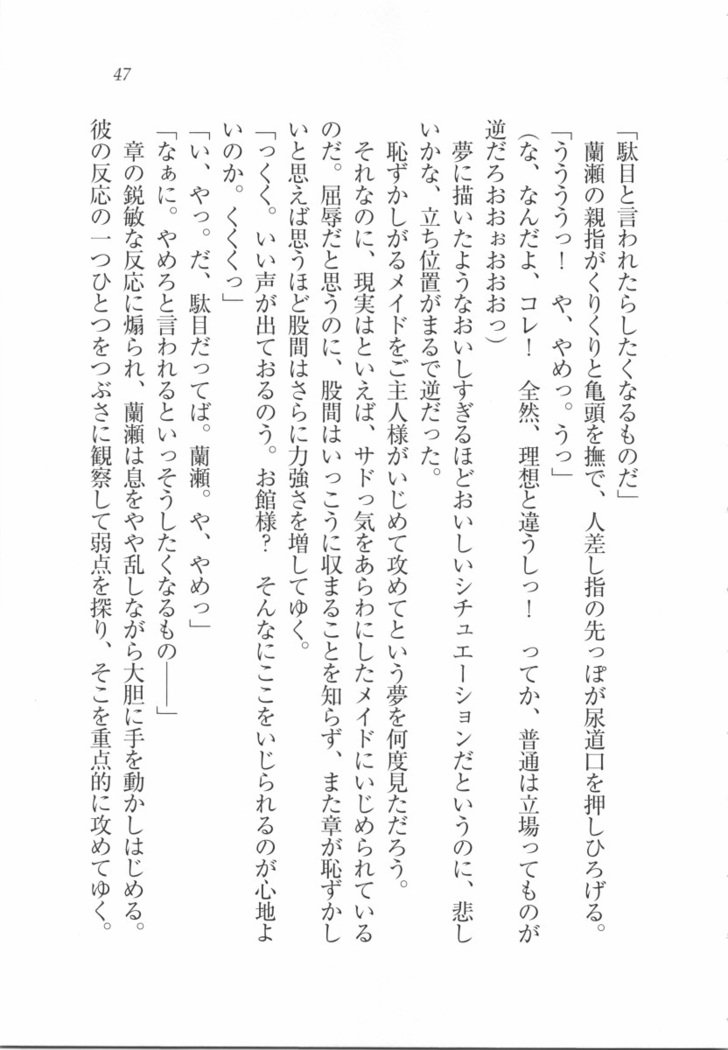 47
「駄目と言われたらしたくなるものだ」
　蘭瀬の親指がくりくりと亀頭を撫で、人差し指の先っぽが尿道口を押しひろげる。
「うううっ！　や、やめっ。うっ」
（な、なんだよ、コレ！　全然、理想と違うしっ！　ってか、普通は立場ってものが
逆だろおおぉおおおっ）
　夢に描いたようなおいしすぎるほどおいしいシチュエーションだというのに、悲し
いかな、立ち位置がまるで逆だった。
　恥ずかしがるメイドをご主人様がいじめて攻めてという夢を何度見ただろう。
　それなのに、現実はといえば、サドっ気をあらわにしたメイドにいじめられている
のだ。屈辱だと思うのに、股間はいっこうに収まることを知らず、また章が恥ずかし
いと思えば思うほど股間はさらに力強さを増してゆく。
「っくく。いい声が出ておるのう。お館様？　そんなにここをいじられるのが心地よ
いのか。くくくっ」
「い、やっ。だ、駄目だってば。蘭瀬。や、やめっ」
「なぁに。やめろと言われるといっそうしたくなるもの――」
　章の鋭敏な反応に煽られ、蘭瀬は息をやや乱しながら大胆に手を動かしはじめる。
彼の反応の一つひとつをつぶさに観察して弱点を探り、そこを重点的に攻めてゆく。